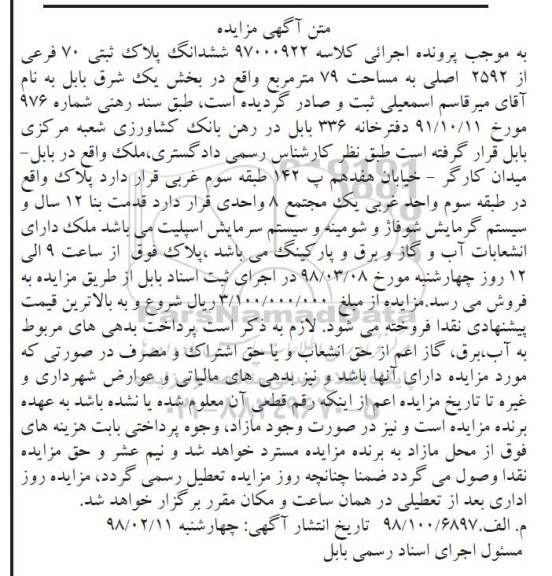 متن آگهی مزایده
به موجب پرونده اجرائی کلاسه ۹۷۰۰۰۹۲۲ ششدانگ پلاک ثبتی ۷۰ فرعی
از ۲۵۹۲ اصلی به مساحت ۷۹ مترمربع واقع در بخش یک شرق بابل به نام
آقای میرقاسم اسمعیلی ثبت و صادر گردیده است، طبق سند رهنی شماره ۹۷۶
مورخ ۹۱/۱۰/۱۱ دفترخانه ۳۳۶ بابل در رهن بانک کشاورزی شعبه مرکزی
بابل قرار گرفته است طبق نظر کارشناس رسمی دادگستری،ملک واقع در بابل–
میدان کارگر – خیابان هفدهم پ ۱۴۲ طبقه سوم غربی قرار دارد پلاک واقع
در طبقه سوم واحد غربی یک مجتمع ۸ واحدی قرار دارد قدمت بنا ۱۲ سال و
سیستم گرمایش شوفاژ و شومینه و سیستم سرمایش اسپلیت می باشد ملک دارای
انشعابات آب و گاز و برق و پارکینگ می باشد ،پلاک فوق از ساعت ۹ الی
۱۲ روز چهارشنبه مورخ ۹۸/۰۳/۰۸ در اجرای ثبت اسناد بابل از طریق مزایده به
فروش می رسد.مزایده از مبلغ ۳/۱۰۰/۰۰۰/۰۰۰ ریال شروع و به بالاترین قیمت
پیشنهادی نقدا فروخته می شود. لازم به ذکر است پرداخت بدهی های مربوط
به آب،برق، گاز اعم از حق انشعاب و یا حق اشتراک و مصرف در صورتی که
مورد مزایده دارای آنها باشد و نیز بدهی های مالیاتی و عوارض شهرداری و
غیره تا تاریخ مزایده اعم از اینکه رقم قطعی آن معلوم شده یا نشده باشد به عهده
برنده مزایده است و نیز در صورت وجود مازاد، وجوه پرداختی بابت هزینه های
فوق از محل مازاد به برنده مزایده مسترد خواهد شد و نیم عشر و حق مزایده
نقدا وصول می گردد ضمنا چنانچه روز مزایده تعطیل رسمی گردد، مزایده روز
اداری بعد از تعطیلی در همان ساعت و مکان مقرر برگزار خواهد شد.
م. الف.۹۸/۱۰۰/۶۸۹۷ تاریخ انتشار آگهی: چهارشنبه ۹۸/۰۲/۱۱
مسئول اجرای اسناد رسمی بابل
ParsNamadData